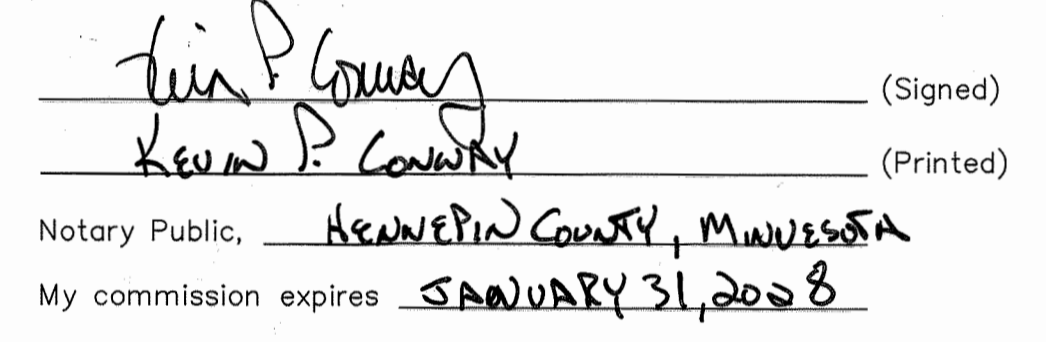 Kevin P. Conway (Signed)
KEVIN P. CONWAY (Printed)
Notary Public, HENNEPIN COUNTY, MINNESOTA
My commission expires JANUARY 31, 2028